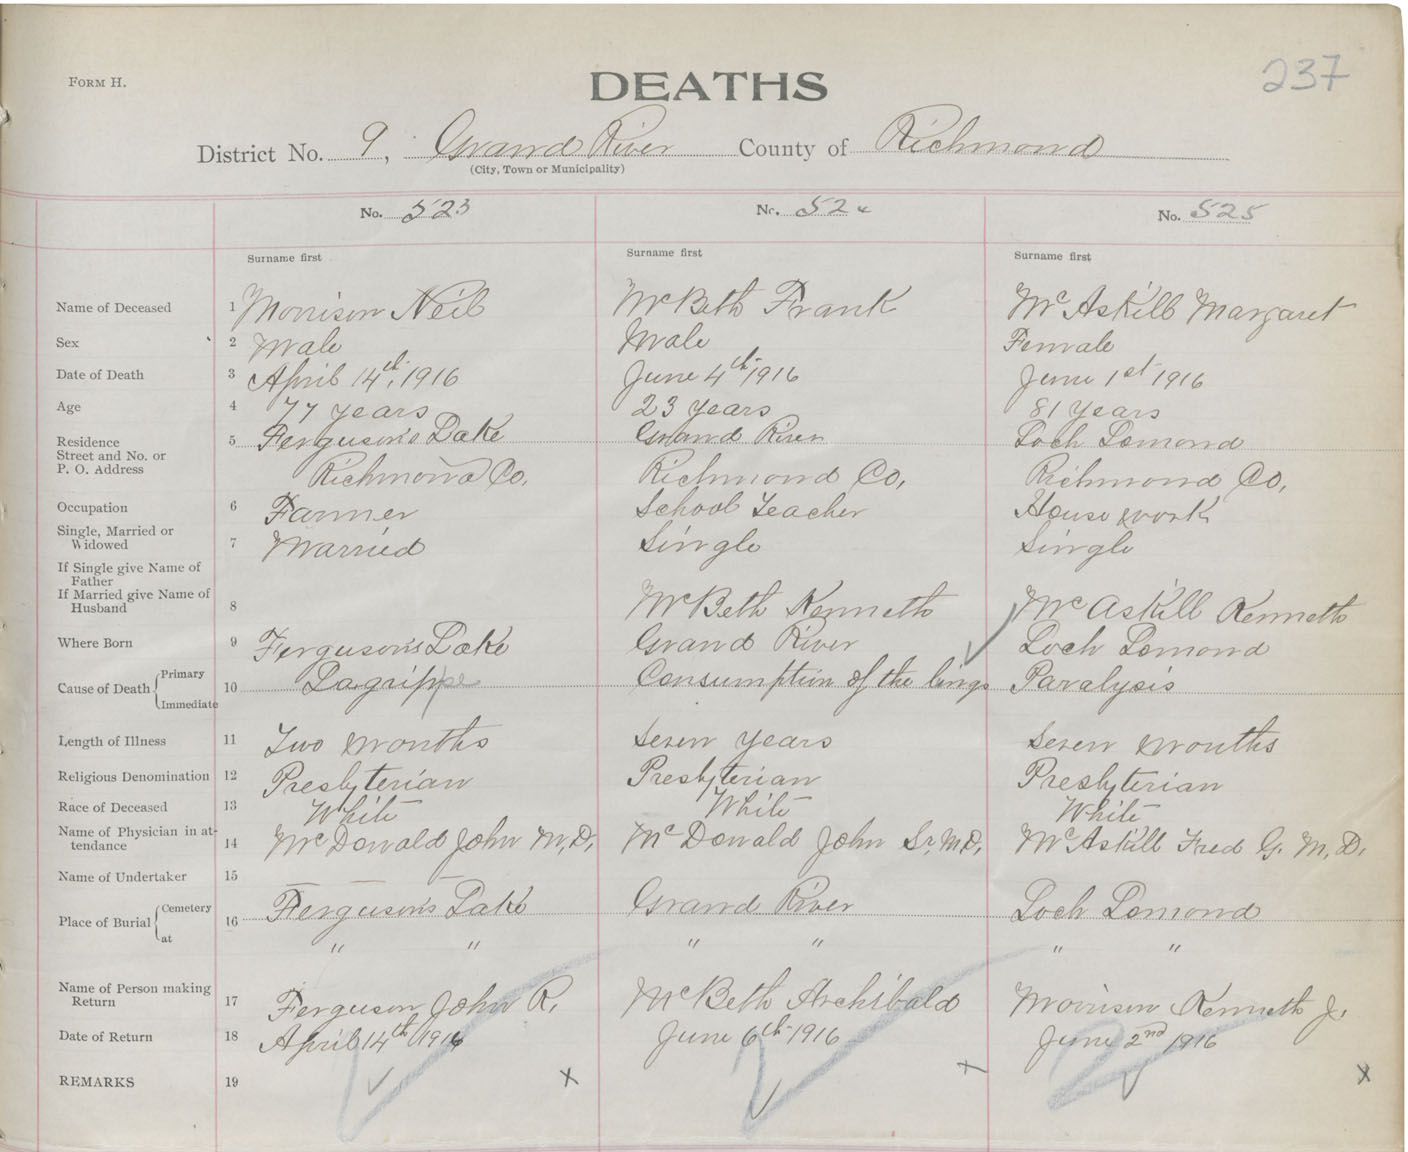 FORM H.
DEATHS
237
District No. 9, Grand River County of Richmond
(City, Town or Municipality)
No. 523 No. 524 No. 525
Surname first Surname first Surname first
Name of Deceased 1 Morrison Neil McBeth Frank McAskill Margaret
Sex 2 Male Male Female
Date of Death 3 April 14th, 1916 June 4th 1916 June 1st 1916
Age 4 77 years 23 years 81 years
Residence 5 Ferguson's Lake Grand River Loch Lomond
Street and No. or
P. O. Address Richmond Co, Richmond Co, Richmond Co,
Occupation 6 Farmer School Teacher House work
Single, Married or
Widowed 7 Married Single Single
If Single give Name of
Father
If Married give Name of
Husband 8 McBeth Kenneth McAskill Kenneth
Where Born 9 Ferguson's Lake Grand River Loch Lomond
Cause of Death Primary
Immediate 10 Lagrippe Consumption of the lungs Paralysis
Length of Illness 11 Two months Seven years Seven months
Religious Denomination 12 Presbyterian Presbyterian Presbyterian
Race of Deceased 13 White White White
Name of Physician in at-
tendance 14 McDonald John M,D, McDonald John Sr, M.D, McAskill Fred G. M,D,
Name of Undertaker 15 — — —
Place of Burial Cemetery 16 Ferguson's Lake Grand River Loch Lomond
at " " " " " "
Name of Person making
Return 17 Ferguson John R, McBeth Archibald Morrison Kenneth J.
Date of Return 18 April 14th 1916 June 6th 1916 June 2nd 1916
REMARKS 19 x x x